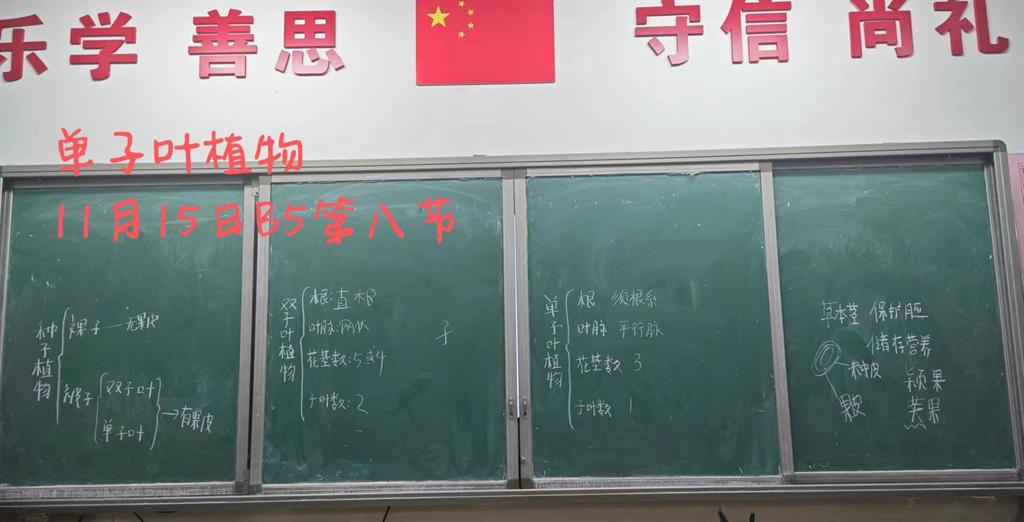 乐学 善思 守信 尚礼
单子叶植物
11月15日B5第八节
种子植物
裸子 — 无果皮
被子
双子叶
单子叶
→有果皮
双子叶植物
根:直根
叶脉:网状
花基数:5或4
子叶数:2
子
单子叶植物
根 须根系
叶脉 平行脉
花基数 3
子叶数 1
草本茎 保护胚
储存营养
种皮
果皮
颖果
蒴果